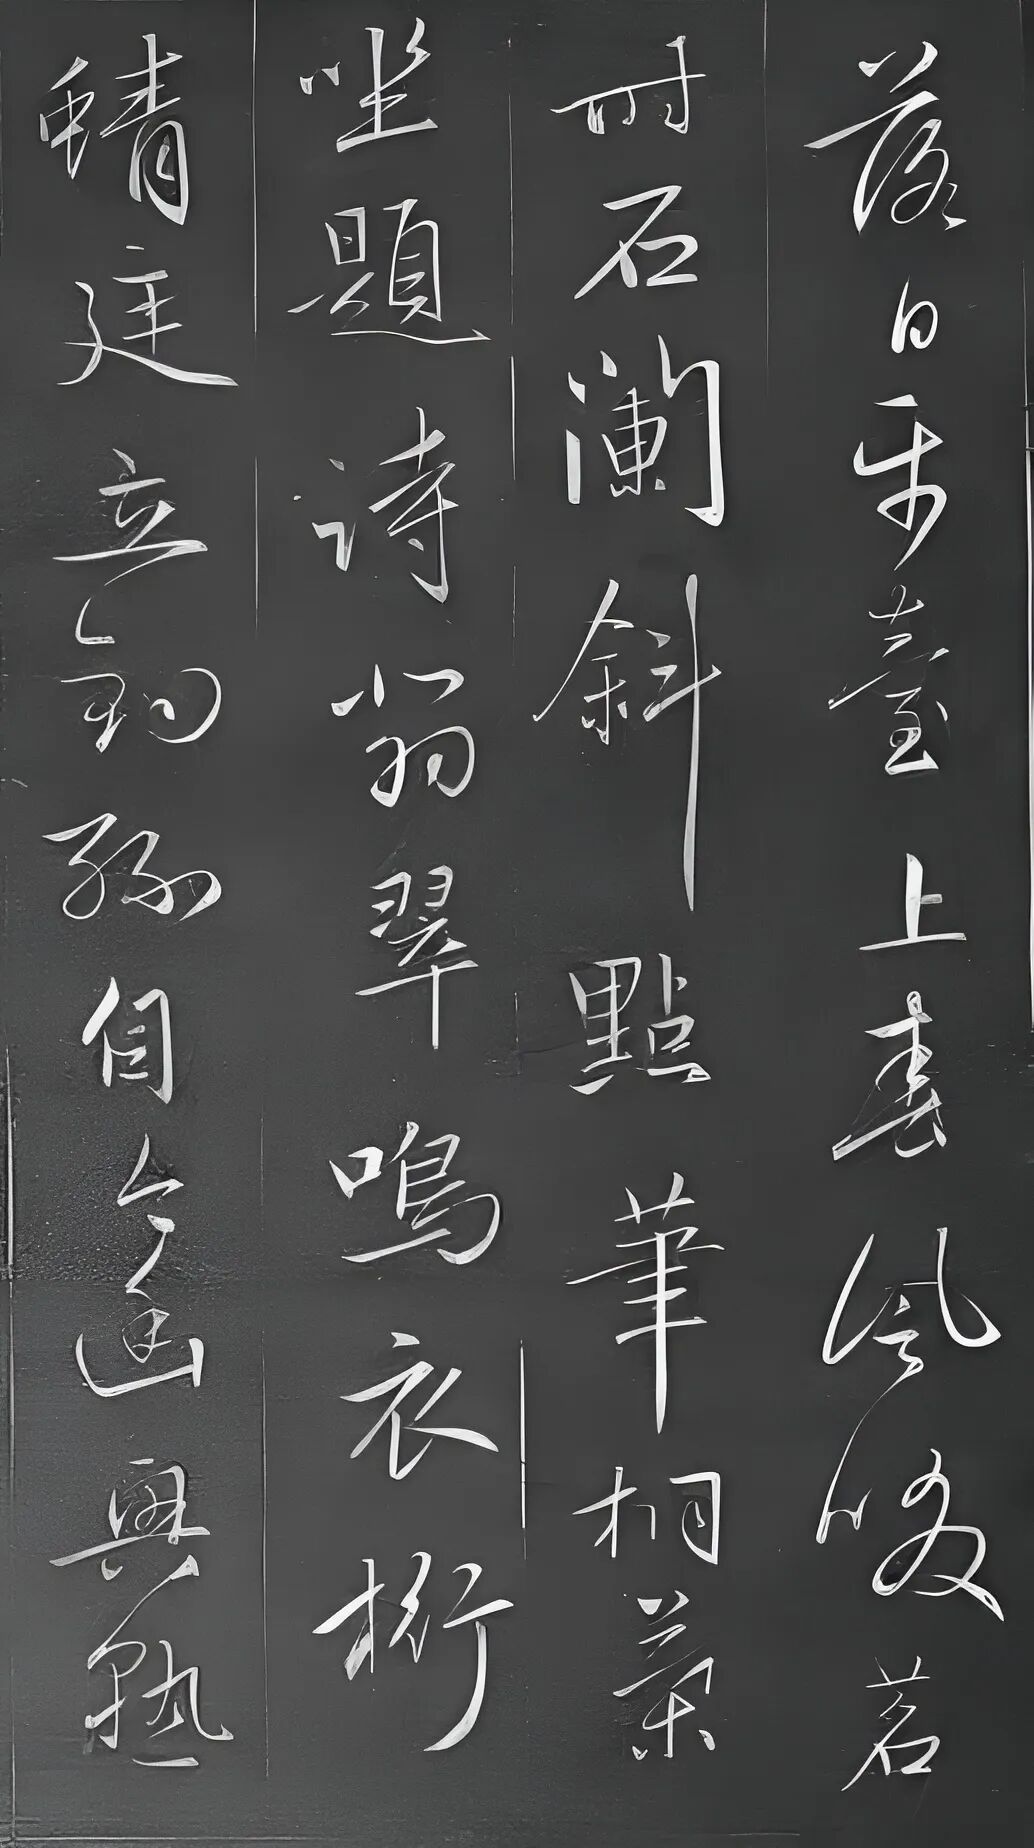 落日平臺上春風啜茗
時石闌斜點筆桐葉
坐題詩翡翠鳴衣桁
蜻廷立釣絲自今幽興熟